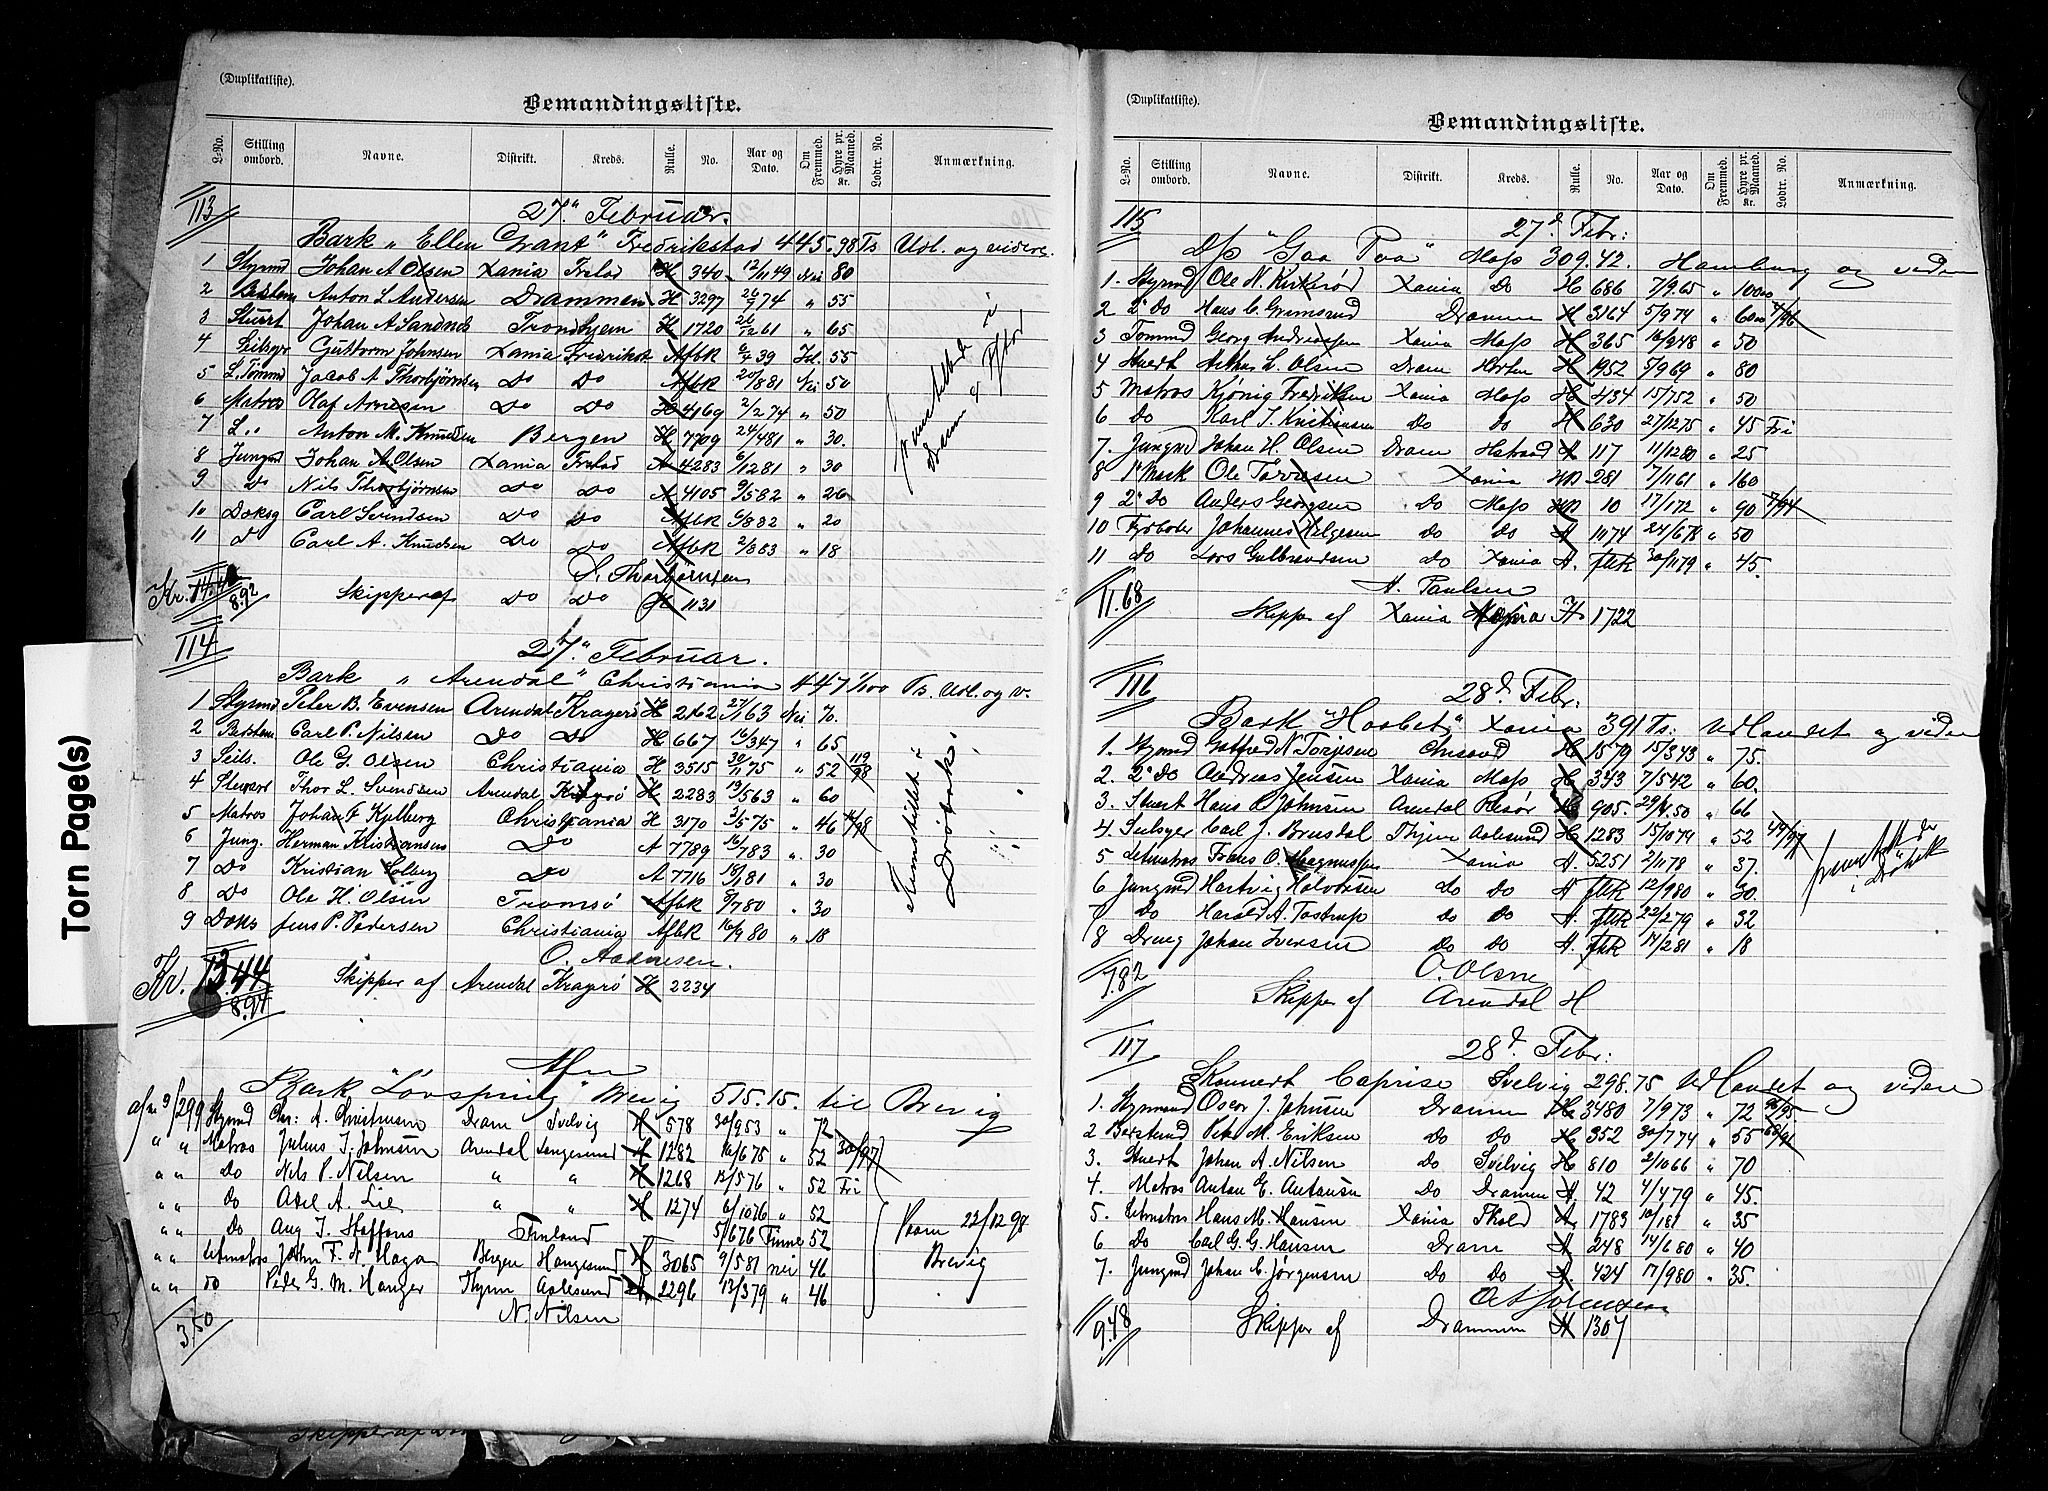 Torn Page(s)
(Duplikatliste).
Bemandingsliste.
L-No. Stilling ombord. Navne. Distrikt. Kreds. Rulle. No. Aar og Dato. Om Fremmed. Hyre pr. Maaned. Kr. Lodtr. No. Anmærkning.
113 27. Februar.
Bark "Ellen Grant" Fredrikstad 445.98 Ts Udl. og videre
1 Styrmd Johan A Olsen Xania Frstad H 340 12/11 49 Nei 80
2 Bestem Anton L Andersen Drammen H 3297 26/7 74 " 55
3 Stuert Johan A Sandnes Trondhjem H 1720 26/12 61 " 65
4 Seilsgr Gustrom Johnsen Xania Fredrikst Afbk 6/7 39 55
5 L. Tømmd Jacob A Thorbjørnsen Do Do Afbk 20/8 81 Nei 50
6 Matros Olaf Arnesen Do Do H 4169 2/2 74 " 50
7 L " Anton M. Knudsen Bergen H 7709 24/4 81 " 30.
8 Jungmd Johan A Olsen Xania Frstad A 4283 6/12 81 " 30
9 Do Nils Thorbjørnsen Do Do A 4105 9/5 82 " 26
10 Doksg Carl Svendsen Do Do Afbk 6/8 82 " 20
11 Do Carl A. Knudsen Do Do Afbk 2/3 83 " 18
S. Thorbjørnsen
Kr. 14.42 8.92 Skipper af Do Do H 1131
114 27. Februar.
Bark "Arendal" Christiania 447 1/100 Ts. Udl. og v.
1 Styrmd Peter B. Evensen Arendal Kragerø H 2162 27/1 63 Nei 70.
2 Bestem Carl P. Nilsen Do Do H 667 16/3 47 " 65
3 Seils. Ole G. Olsen Christiania H 3515 30/11 75 " 52 119/98
4 Thor L. Svendsen Arendal Kragerø H 2283 13/5 63 " 60
5 Matros Johan F Kylberg Christiania H 3170 3/5 75 " 46
6 Jung. Herman Kristiansen Do A 7789 16/7 83 " 30
7 Do Kristian Solberg Do A 7716 18/1 81 " 30
8 Do Ole H. Olsen Tromsø Afbk 9/7 80 " 30
9 Doks Jens P. Pedersen Christiania Afbk 16/9 80 " 18
Fremstillet i Drøbak
O. Aadnesen.
Kr. 13.44 8.94 Skipper af Arendal Kragerø H 2234
Afm
Bark "Løvspring" Brevig 515.15. til Brevig
afm 9/2 99 Styrmd Chr: A. Christensen Dram Svelvig H 578 30/9 53 " 72
" " Matros Julius J. Johnsen Arendal Langesund H 1282 16/6 75 " 52 30/97
" " Do Nels P. Nilsen " " H 1268 13/5 76 " 52 Fri
" " Do Axel A. Lie " " H 1274 6/10 76 " 52
" " Do Aug J. Staffans Finland 5/6 76 Finne 52
" " Letmatros John F. A Haga Bergen Haugesund H 3065 9/5 81 nei 46
" " do Peder G. M. Hanger Thjem Aalesund A 2296 13/3 79 " 46
Paam 22/12 98 Brevig
N. Nilsen
3.50
(Duplikatliste).
Bemandingsliste.
L-No. Stilling ombord. Navne. Distrikt. Kreds. Rulle. No. Aar og Dato. Om Fremmed. Hyre pr. Maaned. Kr. Lodtr. No. Anmærkning.
115 27d Febr:
D/s "Gaa Paa" Moss 309.42. Hamburg og videre
1. Styrmd Ole N. Kirkerød Xania Do H 686 7/9.65 " 100
2 2" Do Hans C. Gremsrud Dramen H 3164 5/9 74 " 60
3 Tommd Georg Andreassen Xania Moss H 365 16/2 48 " 50
4 Stuert Arthur L. Olsen Dram Horten H 1952 5/9 69 " 80
5 Matros Kjønig Fredriksen Xania Moss H 434 15/7 52 " 50
6 Do Karl J. Kristiansen do do H 630 27/12 75 " 45 Fri
7. Jungmd Johan H. Olsen Dram A 117 11/12 80 " 25
8 1" Mask Ole Torvasen Xania 281 7/11 61 " 160
9 2" Do Anders Georgsen Do Moss 10 17/1 72 " 90
10 Fyrboder Johannes Helgesen do do A 1174 24/6 78 " 50
11 Do Lars Gulbrandsen do Xania A. flk 30/11 79 " 45.
A. Paulsen
11.68 Skipper af Xania H 1722
116 28d Febr.
Bark "Haabet" Xania 391 Ts: Udlandet og videre
1. Styrmd Gotfred N Torjesen Chrssand H 1579 15/3 43 " 75.
2. 2" Do Andreas Jensen Xania Moss H 343 7/5 42 " 60.
3. Stuert Hans R Johnsen Arendal Risør H 905. 29/4 50 " 66
4. Seilsgr Carl J. Brusdal Thjem Aalesund H 1283 15/10 74 " 52 44/97
5 Letmatros Frans O. Magnussen Xania A. 5251 2/11 78 " 37.
6 Jungmd Hartvig Halvorsen do Do A flk 12/9 80 " 30.
7 Do Harald A. Tostrup do do A. flk 22/2 79 " 32
8 Dreng Johan Iversen Do Do A. flk 14/2 81 " 18
O. Olsen
7.82 Skipper af Arendal H
117 28d. Febr:
Skonnert Caprise Svelvig 298.75 Udlandet og videre
1. Styrmand Oscar J. Johnsen Dramen H 3480 7/9 73 " 72
2 Bestmd Peter M. Eriksen Do Do H 352 30/7 74 " 55 68/96
3. Stuert Johan A. Nilsen Do Svelvig H 810 2/10 66 " 70
4. Matros Antan E. Antansen Do Dramen A. 42 4/4 79 " 45.
5. Letmatros Hans M. Hansen Xania A. 1783 10/1 81 " 35
6 Do Carl G. G. Hansen Dram A 248 14/6 80 " 40
7. Jungmd Johan C. Jørgensen Do Do A. 424 17/9 80 " 35.
O A Sørensen
9.48 Skipper af Drammen H 1307